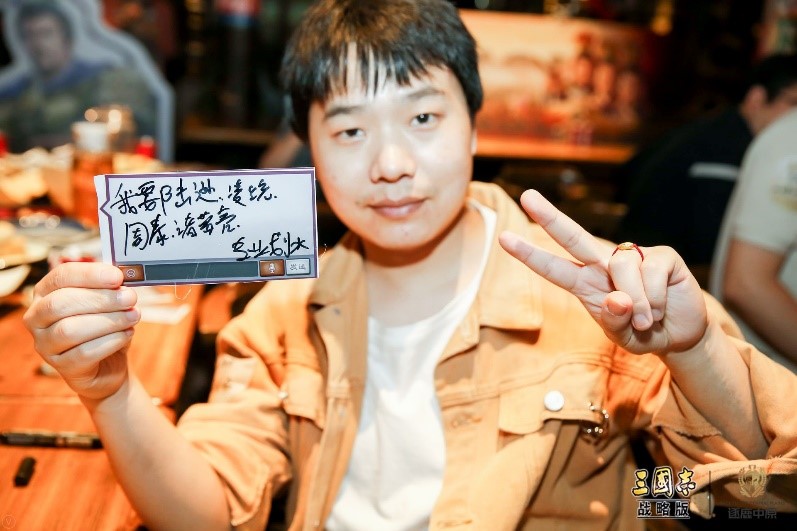 我要陆逊.凌统.
周泰.诸葛亮.
发送
三國志
战略版
逐鹿中原